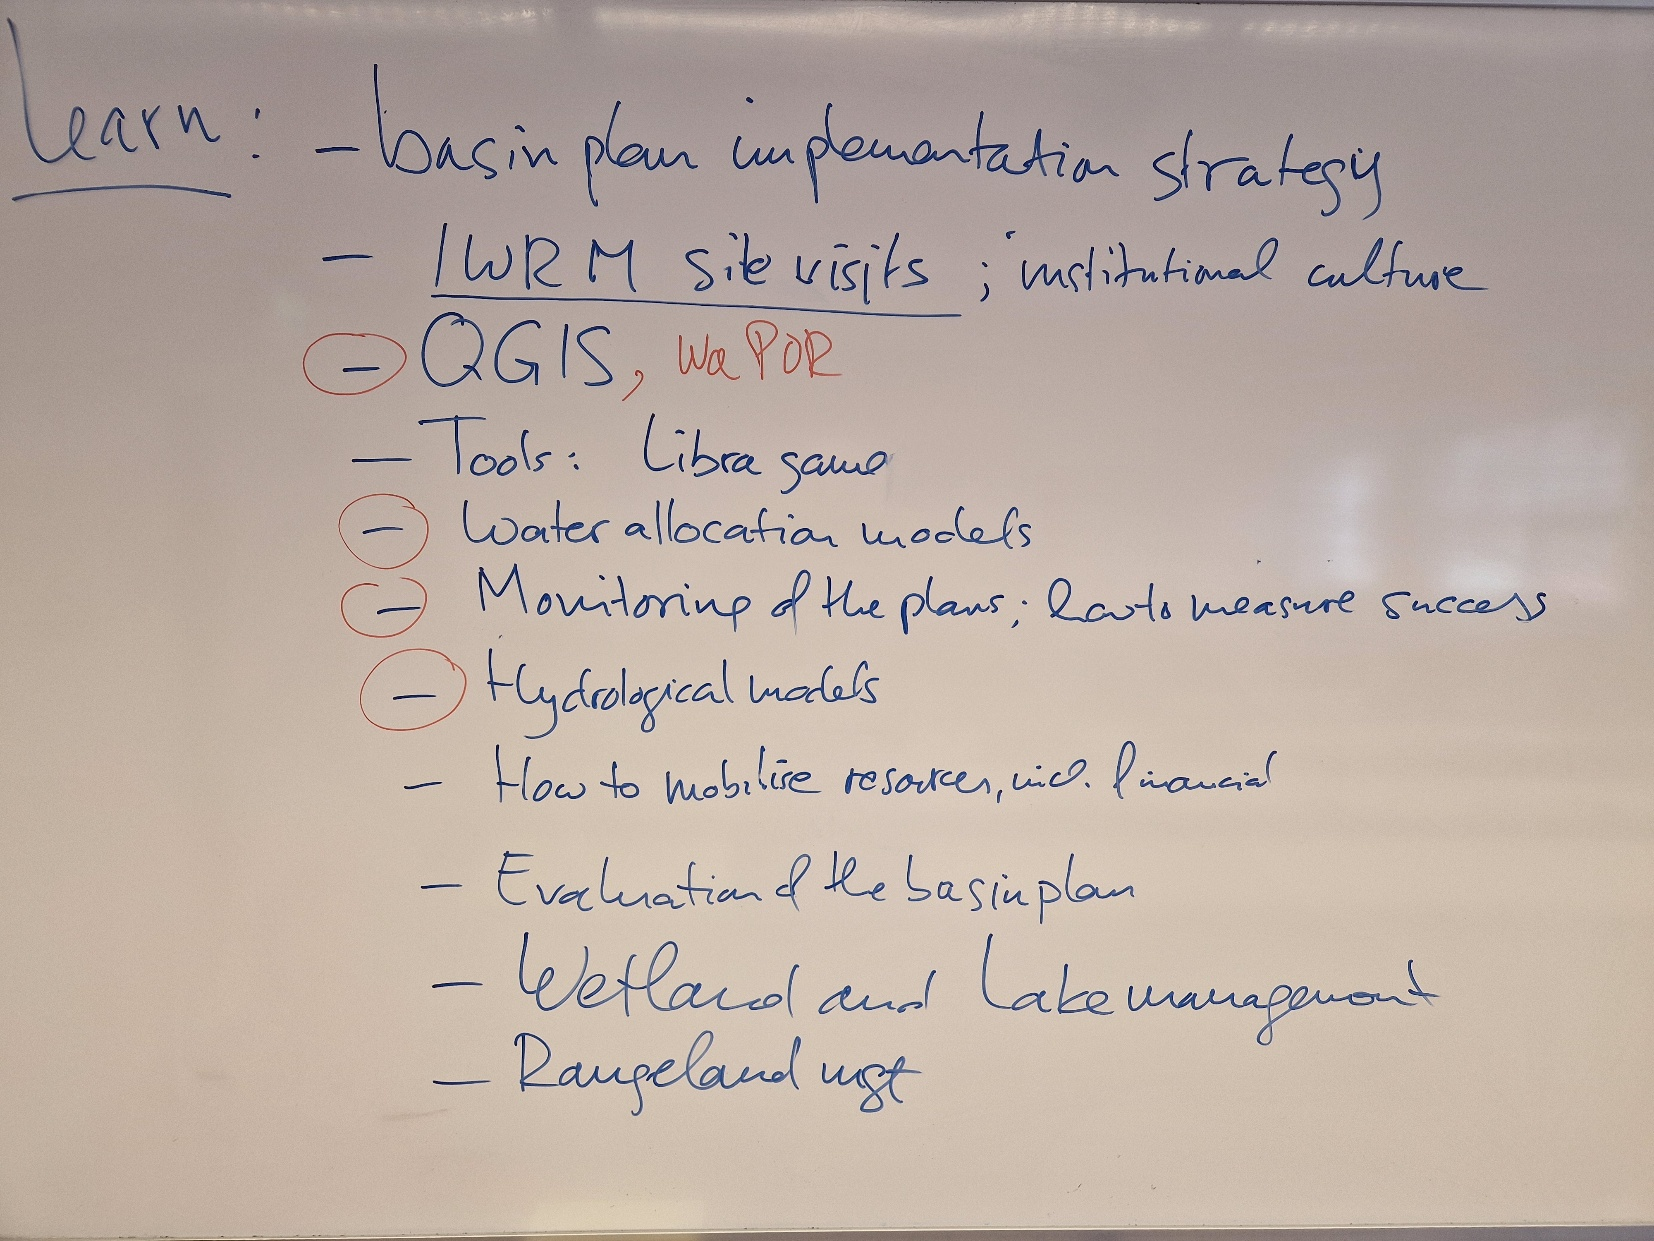 Learn: - basin plan implementation strategy
- IWRM site visits ; institutional culture
- QGIS, WaPOR
- Tools: Libra game
- Water allocation models
- Monitoring of the plans; how to measure success
- Hydrological models
- How to mobilise resources, incl. financial
- Evaluation of the basin plan
- Wetland and Lake management
- Rangeland mgt